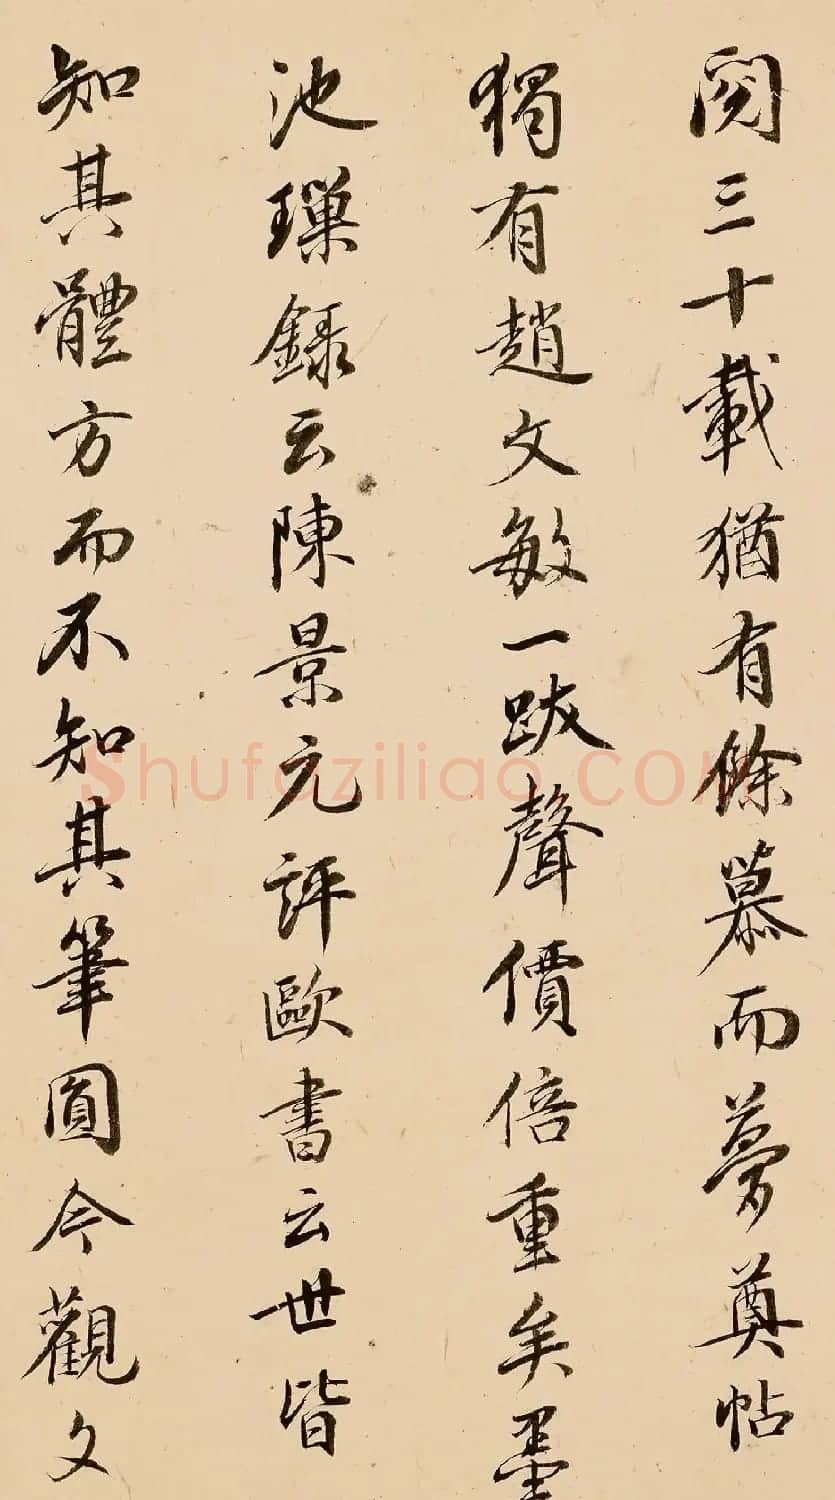 閱三十載猶有餘慕而夢奠帖
獨有趙文敏一跋聲價倍重矣墨
池璅錄云陳景元評歐書云世皆
知其體方而不知其筆圓今觀文
shufaziliao.COM